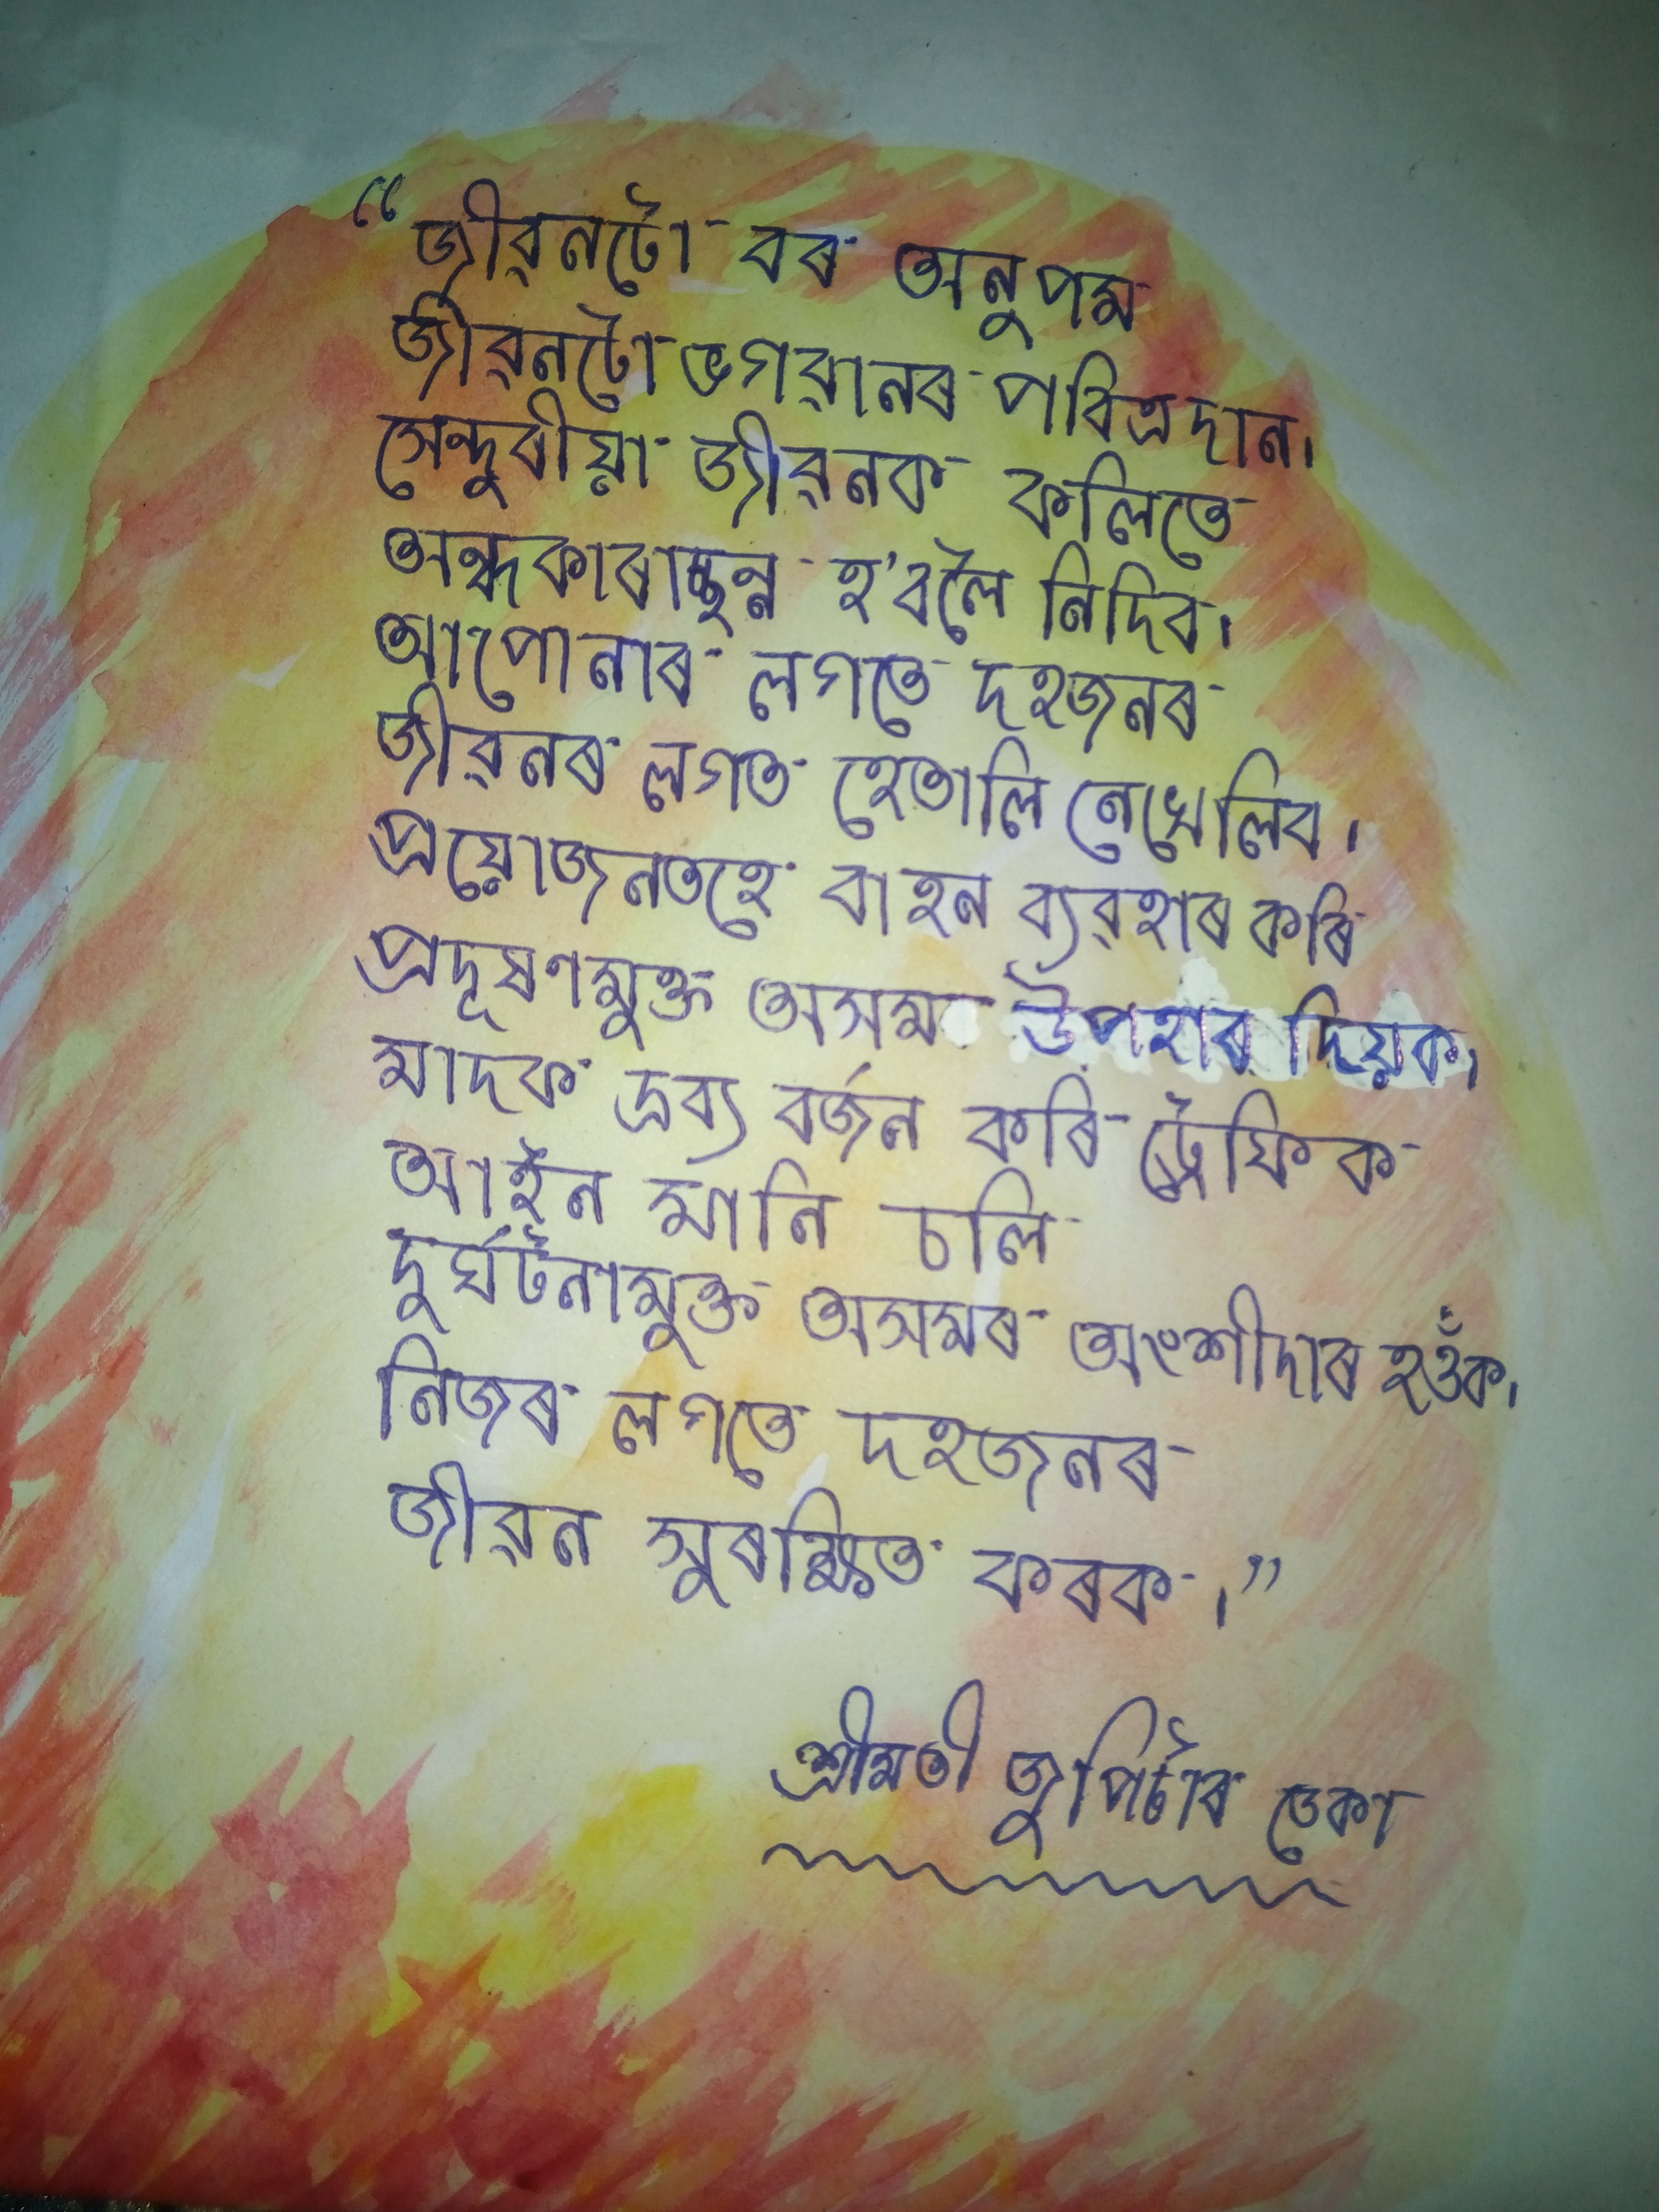 “জীৱনটো বৰ অনুপম
জীৱনটো ভগৱানৰ পবিত্ৰ দান।
সেন্দুৰীয়া জীৱনক কলিতে
অন্ধকাৰাচ্ছন্ন হ'বলৈ নিদিব।
আপোনাৰ লগতে দহজনৰ
জীৱনৰ লগত হেতালি নেখেলিব।
প্ৰয়োজনতহে বাহন ব্যৱহাৰ কৰি
প্ৰদূষণমুক্ত অসম উপহাৰ দিয়ক।
মাদক দ্ৰব্য বৰ্জন কৰি ট্ৰেফিক
আইন মানি চলি
দুৰ্ঘটনামুক্ত অসমৰ অংশীদাৰ হওঁক।
নিজৰ লগতে দহজনৰ
জীৱন সুৰক্ষিত কৰক।”
শ্ৰীমতী জুপিটাৰ ডেকা